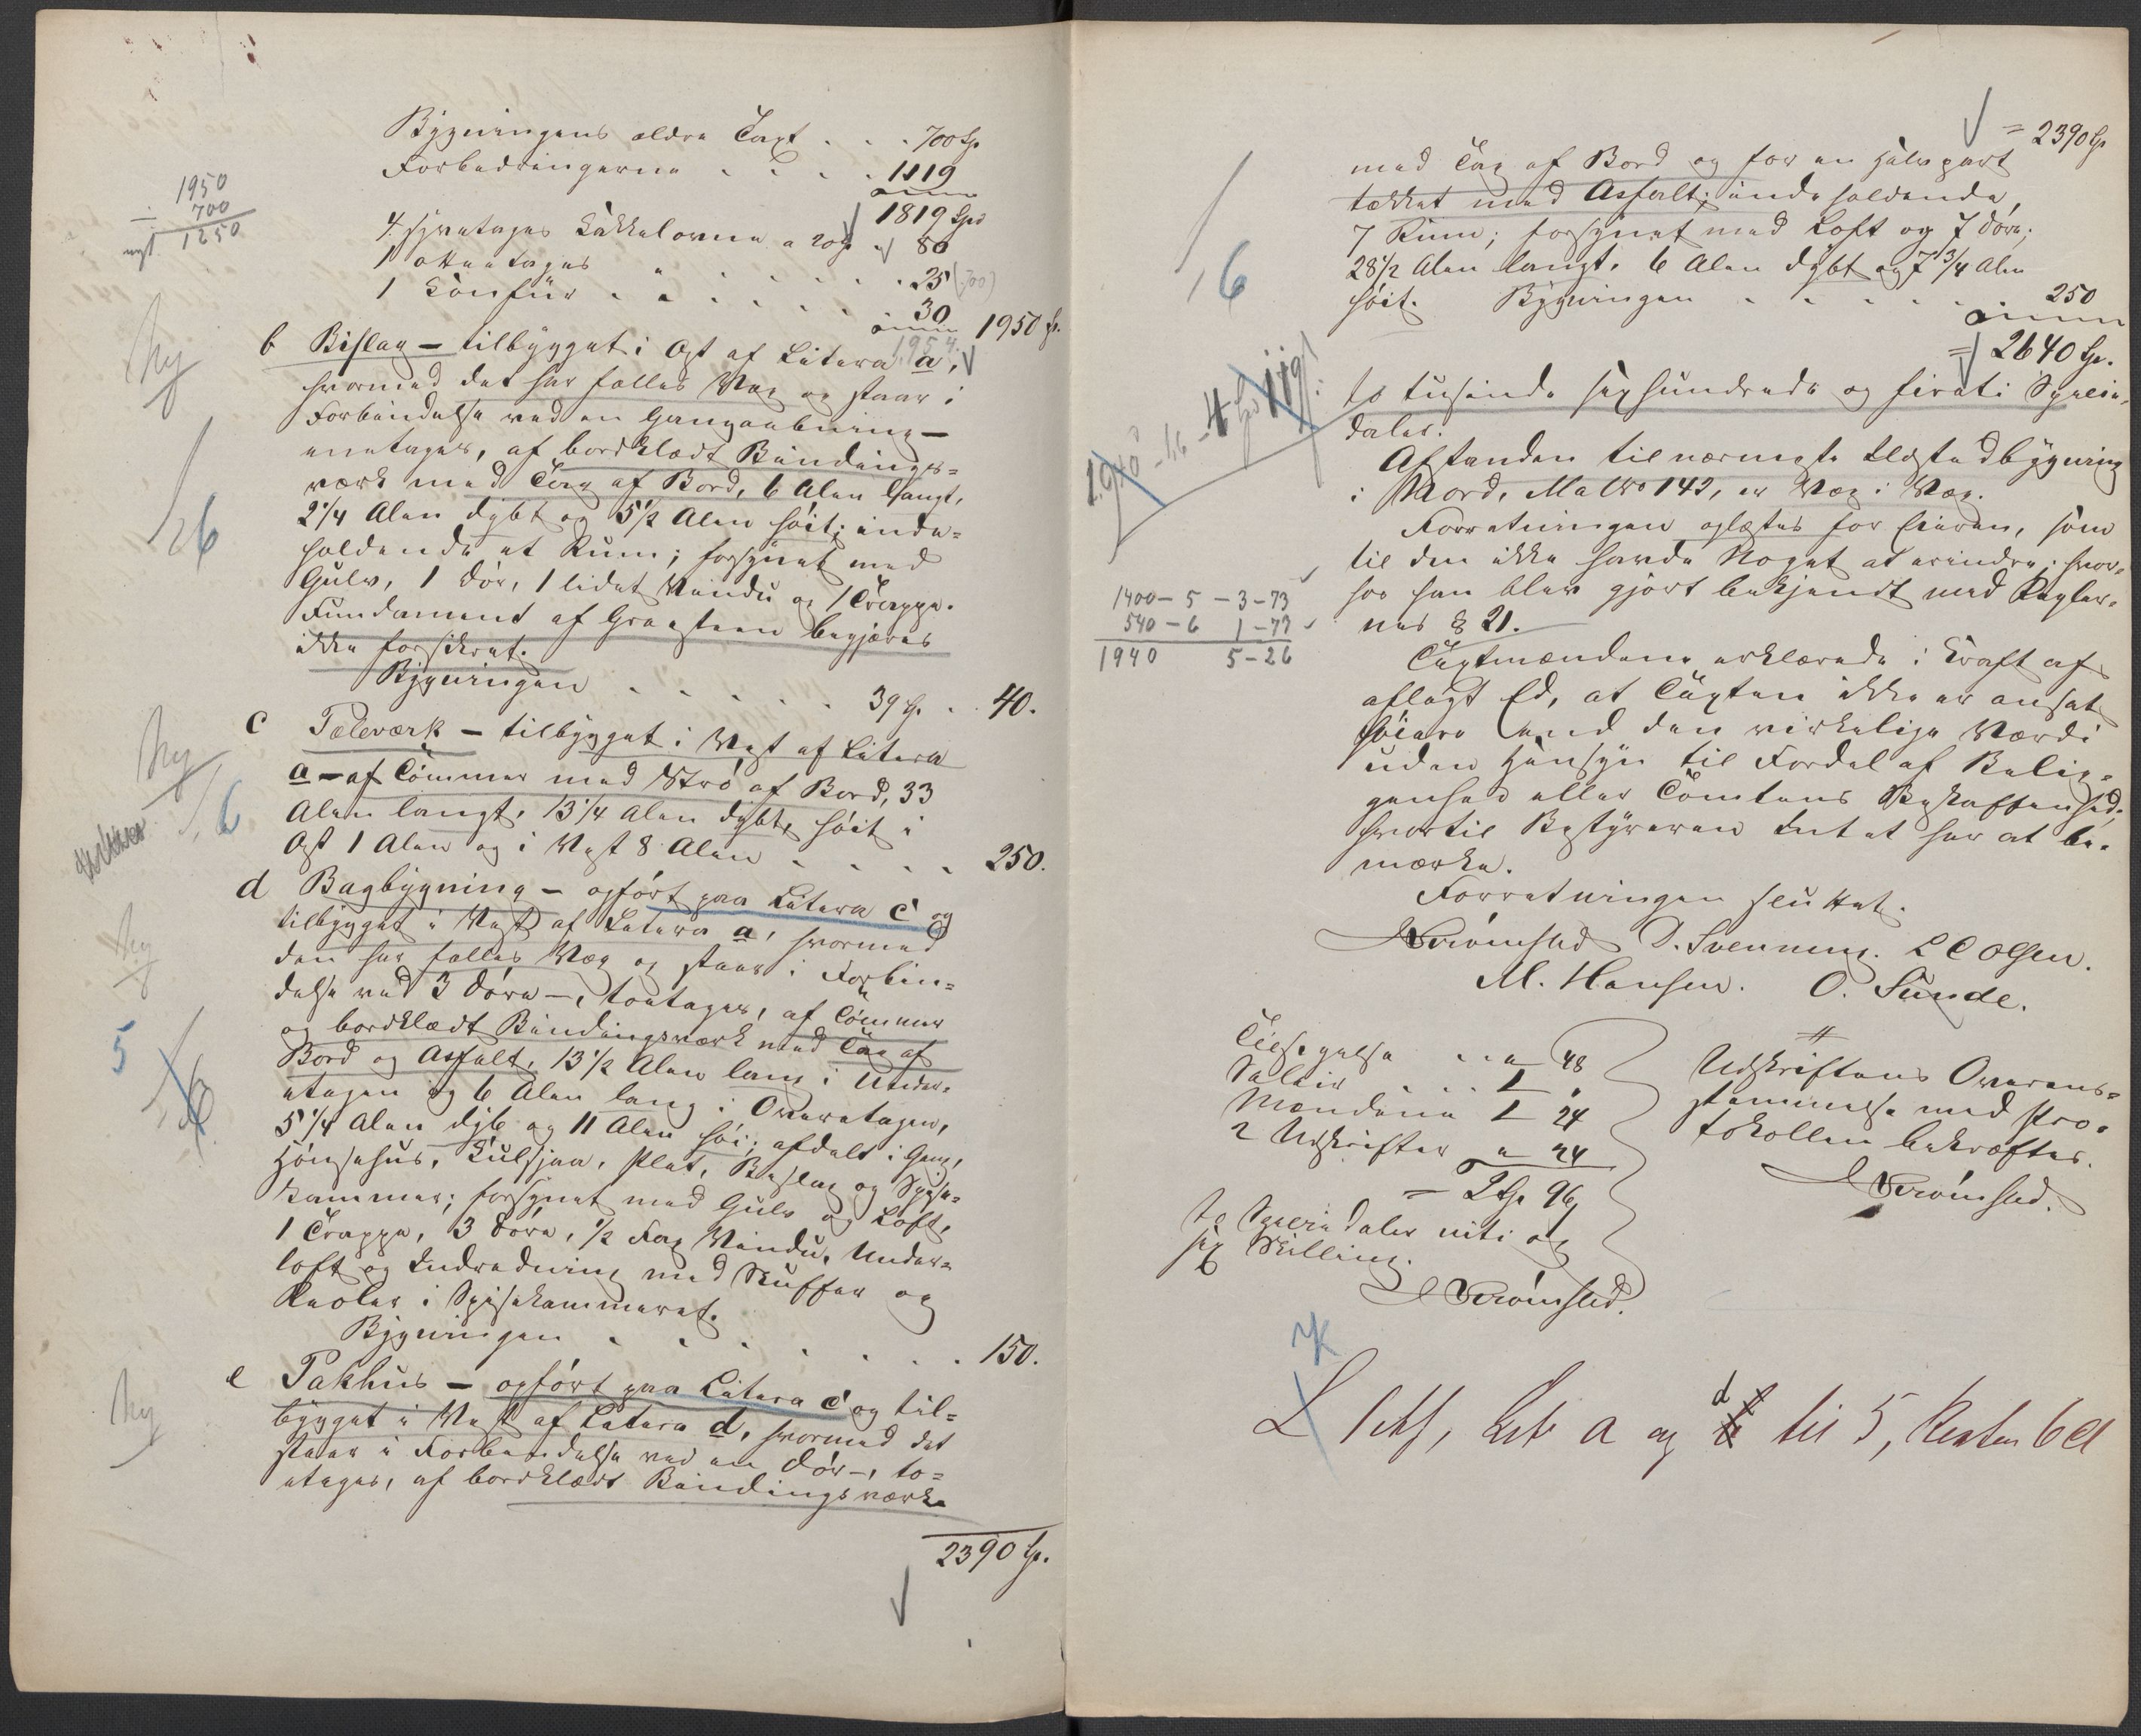 Bygningens ældre Taxt . . . 700 Sp
Forbedringerne . . . . 1119
1819 Spd
4 fireetages Kakkelovne a 20 Sp " 80
1 otteetages " . . . . . 25 (700)
1 Komfur . . . . . . 30
1950 Sp.
1950
700
nyt 1250
1954.
b Bislag – tilbygget i Øst af Litera a,
hvormed det har fælles Væg og staar i
Forbindelse ved en Gangaabning –
eenetages, af bordklædt Bindings=
værk med Tag af Bord, 6 Alen langt,
2 1/4 Alen dybt og 5 1/2 Alen høit; inde=
holdende et Rum; forsynet med
Gulv, 1 Dør, 1 lidet Vindu og 1 Trappe.
Fundament af Graasteen begjæres
ikke forsikret.
Bygningen . . . . . . 39 Sp. . 40.
ny
6
c Pæleværk – tilbygget i Vest af Litera
a – af Tømmer med Stro af Bord, 33
Alen langt, 13 1/4 Alen dybt, høit i
Øst 1 Alen og i Vest 8 Alen . . . . 250.
ny
6
d Bagbygning – opført paa Litera c og
tilbygget i Vest af Litera a, hvormed
den har fælles Væg og staar i Forbin=
delse ved 3 Døre –, toetages, af Tømmer
og bordklædt Bindingsværk med Tag af
Bord og Asfalt, 13 1/2 Alen lang i Under=
etagen og 6 Alen lang i Overetagen,
5 1/4 Alen dyb og 11 Alen høi; afdelt i Gang,
Hønsehus, Kulsjaa, Plat, Bislag og Spise=
kammer; forsynet med Gulv og Loft,
1 Trappe, 3 Døre, 1/2 Fag Vindu, Under=
loft og Indredning med Skuffer og
Reoler i Spisekammeret.
Bygningen . . . . . . . 150.
ny
5
6
e Pakhus – opført paa Litera c og til=
bygget i Vest af Litera d, hvormed det
staar i Forbindelse ved en Dør –, to=
etages, af bordklædt Bindingsværk
ny
2390 Sp.
= 2390 Sp
med Tag af Bord og for en Halvpart
tækket med Asfalt; indeholdende,
7 Rum; forsynet med Loft og 7 Døre;
28 1/2 Alen langt, 6 Alen dybt og 7 3/4 Alen
høit. Bygningen . . . . . . 250
6
= 2640 Sp.
to tusinde sexhundrede og firti Specie=
daler.
Afstanden til nærmeste Ildstedbygning
i Nord, Mat No 142, er Væg i Væg.
Forretningen oplæstes for Eieren, som
til den ikke havde Noget at erindre; hvor=
hos han blev gjort bekjendt med Regler=
nes § 21.
1400 – 5 – 3 – 73
540 – 6 1 – 77
1940 5 – 26
Taxtmændene erklærede i Kraft af
aflagt Ed, at Taxten ikke er ansat
høiere end den virkelige Værdi
uden Hensyn til Fordel af Belig=
genhed eller Tomtens Beskaffenhed,
hvortil Bestyreren Intet har at be=
mærke.
Forretningen sluttet.
Strömsted D. Svenning. L C Olsen.
M. Hansen. O. Sunde.
Tilsigelse . . " 48
Salair . . . 1 "
Mændene 1 24
2 Udskrifter " 24
= 2 Sp 96
to Speciedaler niti og
sex Skilling.
Strömsted.
Udskriftens Overens=
stemmelse med Pro=
tokollen bekræftes.
Strömsted.
Litr a og d til 5, Resten 6 Cl